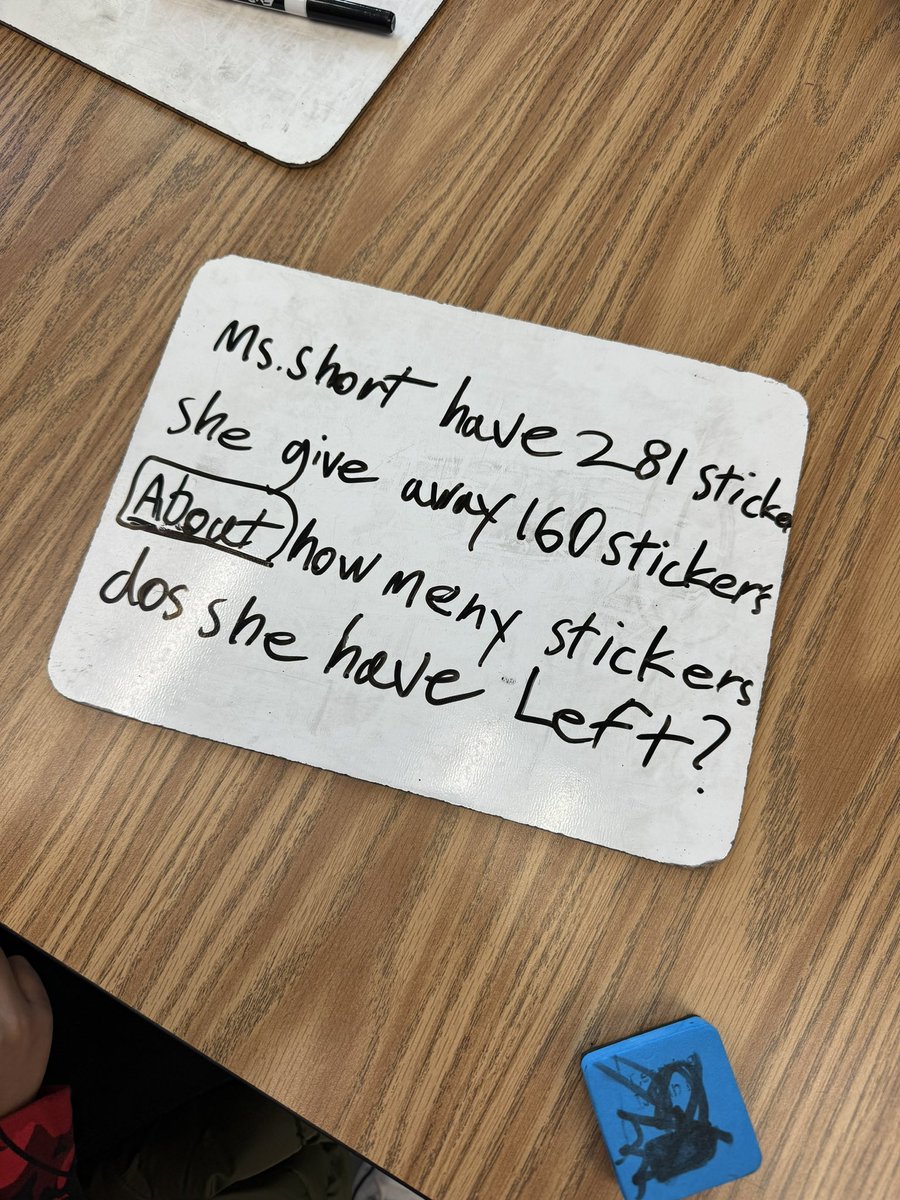 Ms. short have 281 sticke
she give away 160 stickers
About how meny stickers
dos she have Left?